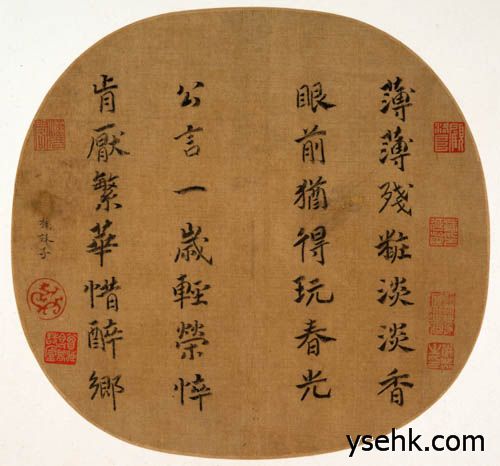 薄薄殘粧淡淡香
眼前猶得玩春光
公言一歲輕榮悴
肯厭繁華惜醉鄉
楊妹子
ysehk.com